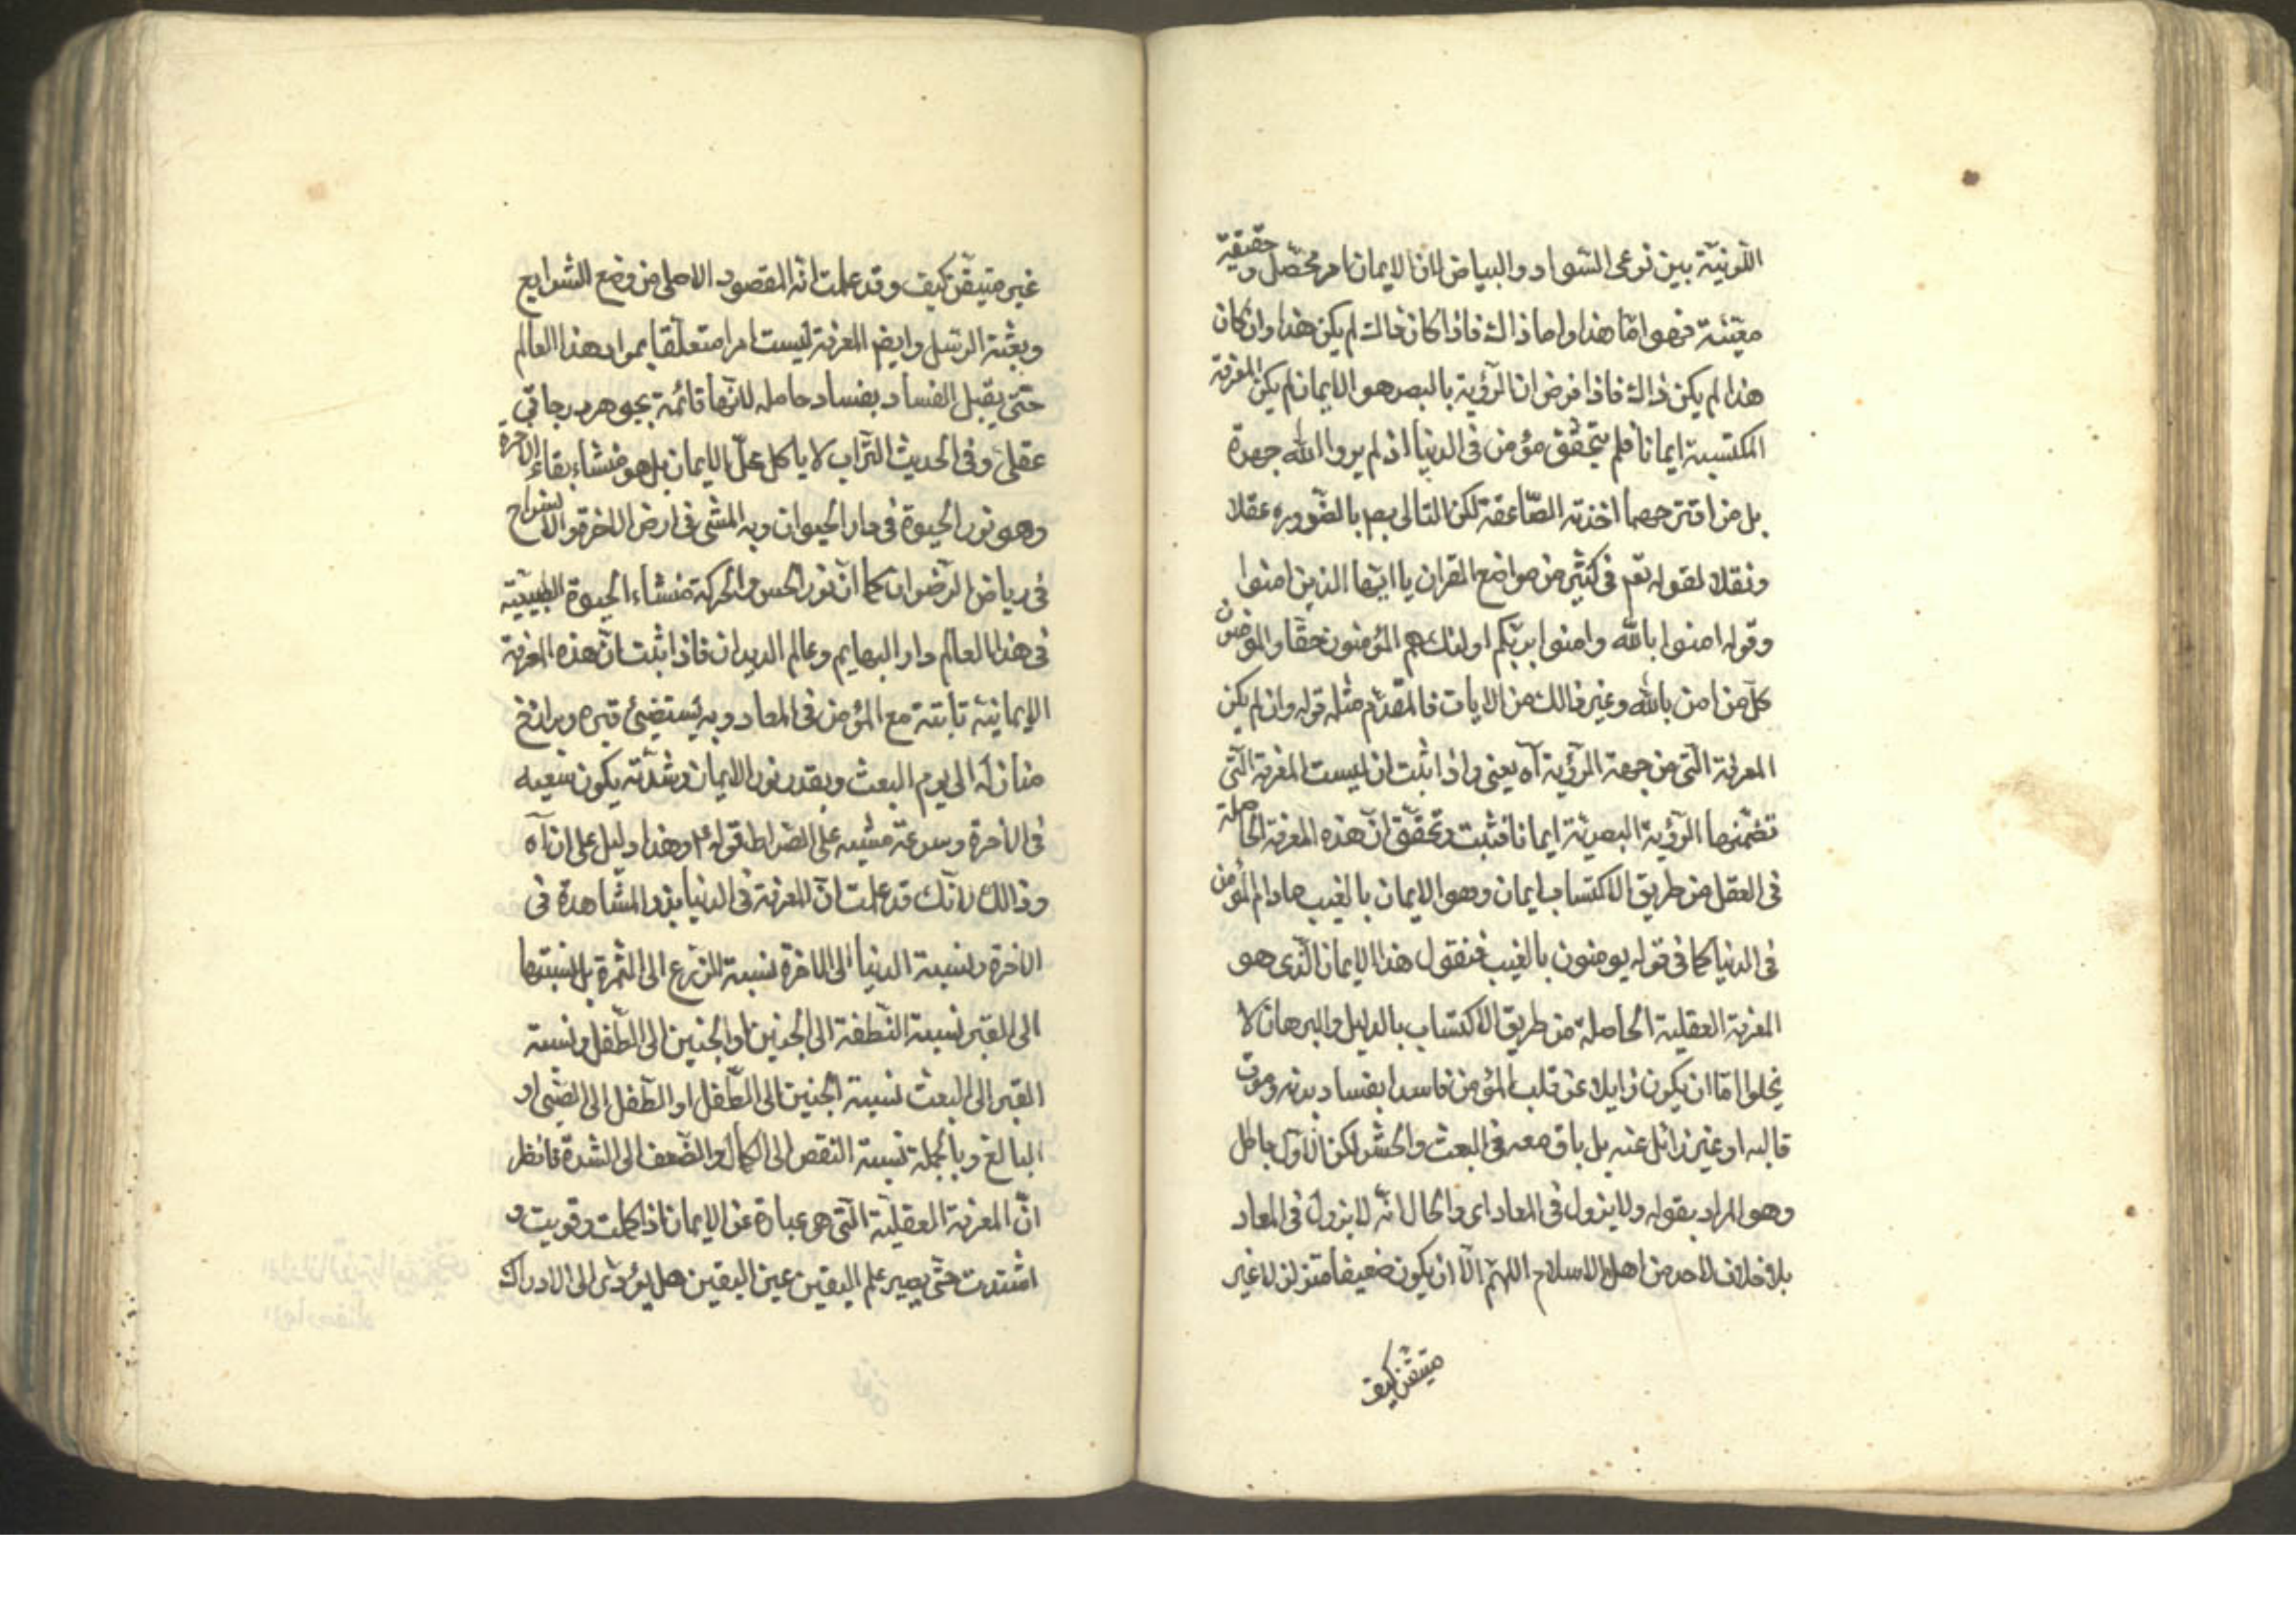 اللّونيّة بين نوعى السّواد والبياض لان الايمان امر محصّل و حقيقية
معيّنة فهو امّا هذا واما ذالك فاذا كان ذالك لم يكن هذا وان كان
هذا لم يكن ذالك فاذا فرض ان الرّؤية بالبصر هو الايمان لم يكن المعرفة
المكتسبة ايمانا فلم يتحقّق مؤمن فى الدنيا اذ لم يروا الله جهرة
بل من اقترحها اخذته الصّاعقة لكن التالى بط بالضّروره عقلا
ونقلا لقوله تعم فى كثير من مواضع القران يا ايّها الذين امنوا
وقوله امنوا بالله وامنوا بربّكم اولئك هم المؤمنون حقّا والمؤمنون
كلّ من امن بالله وغير ذالك من الايات فالمقدّم مثله قوله وان لم يكن
المعرفة الّتى من جهة الرّؤية آه يعنى واذا ثبت ان ليست المعرفة الّتى
تضمّنها الرّؤية البصريّة ايمانا فثبت وتحقّق انّ هذه المعرفة الحاصلة
فى العقل من طريق الاكتساب ايمان وهو الايمان بالغيب مادام المؤمن
فى الدنيا كما فى قوله يومنون بالغيب فنقول هذا الايمان الّذى هو
المعرفة العقلية الحاصلة من طريق الاكتساب بالدليل والبرهان لا
يخلوا امّا ان يكون زايلا عن قلب المؤمن فاسدا بفساد بدنه وموت
قالبه او غير زائل عنه بل باق معه فى البعث والحشر لكن الاوّل باطل
وهو المراد بقوله ولا يزول فى المعاد اى والحال انّه لا يزول فى المعاد
بلا خلاف لاحد من اهل الاسلام اللهمّ الّا ان يكون ضعيفا متزلزلا غير
متيقّن كيف
غير متيقّن كيف وقد علمت انّه المقصود الاصلى من وضع الشرايع
وبعثة الرّسل وايضم المعرفة ليست امرا متعلّقا بمواد هذا العالم
حتى يقبل الفساد بفساد حامله لانّها قائمة بجوهر
عقلى وفى الحديث التّراب لا ياكل محلّ الايمان بل هو منشاء بقاء الاخرة
وهو نور الحيوة فى دار الحيوان وبه المشى فى ارض الاخرة والانسراح
فى رياض الرّضوان كما انّ نور الحس والحركة منشاء الحيوة الطبيعيّة
فى هذا العالم دار البهايم وعالم الديدان فاذا ثبت انّ هذه المعرفة
الايمانيّة ثابتة مع المؤمن فى المعاد وبه يستضيئ قبره وبرازخ
منازله الى يوم البعث وبقدر نور الايمان وشدّته يكون سعيه
فى الاخرة وسرعة مشيه على الصّراط قوله ع وهذا دليل على ان آه
وذالك لانّك قد علمت انّ المعرفة فى الدنيا بذر المشّاهدة فى
الاخرة ونسبة الدنيا الى الاخرة نسبة الزرع الى الثمرة بل نسبتها
الى القبر نسبة النّطفة الى الجنين او الجنين الى الطّفل ونسبة
القبر الى البعث نسبة الجنين الى الطّفل او الطّفل الى الصّبى او
البالغ وبالجملة نسبة النقص الى الكمال والضّعف الى الشدّة فانظر
انّ المعرفة العقليّة الّتى هى عبارة عن الايمان اذا كملت وقويت و
اشتدت حتّى يصير علم اليقين عين اليقين هل يؤدّى الى الادراك